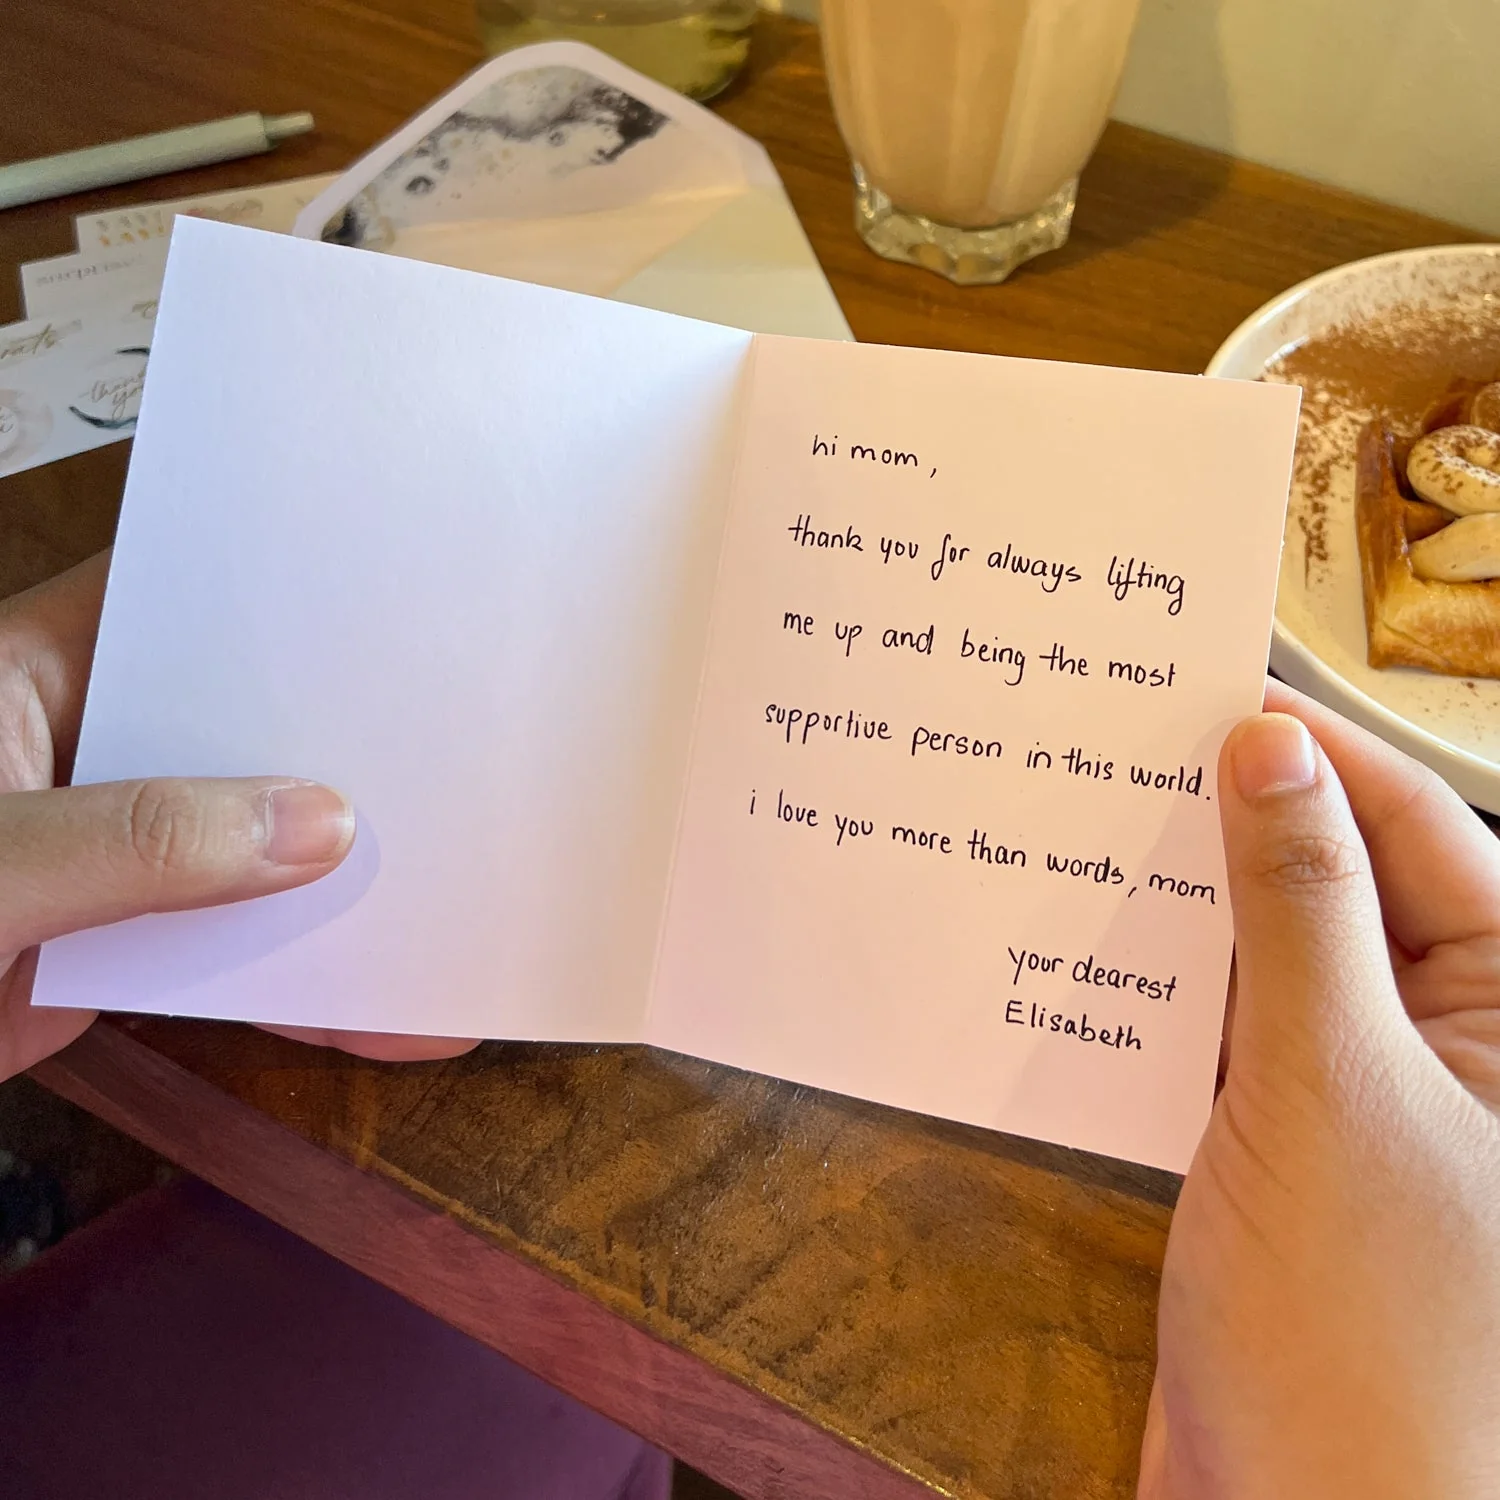 thank
you
hi mom,
thank you for always lifting
me up and being the most
supportive person in this world.
i love you more than words, mom
your dearest
Elisabeth